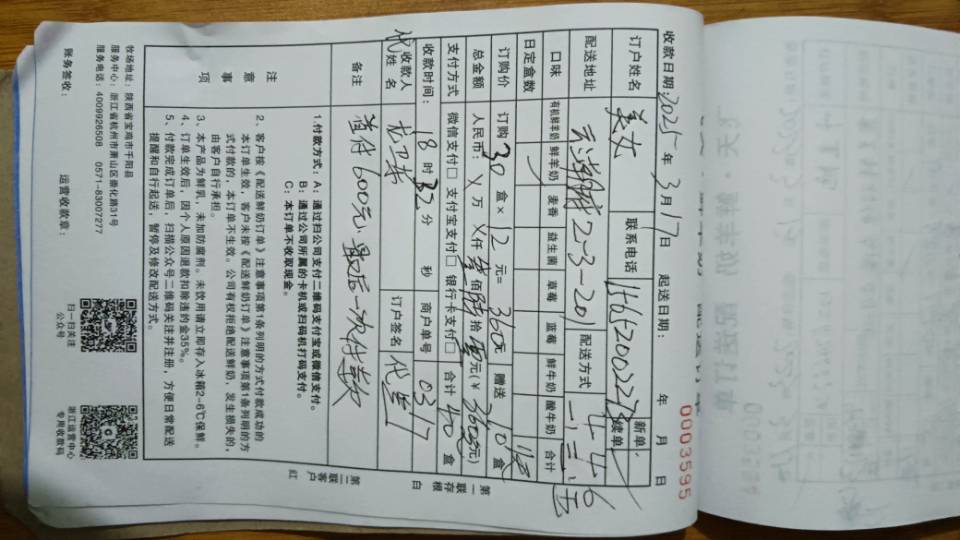 0003595
收款日期：2025年3月17日 起送日期： 年 月 日
订户姓名 美女 联系电话 新单 续单
配送地址 2-3-201 配送方式
口味 有机鲜羊奶 鲜羊奶 麦香 益生菌 草莓 蓝莓 鲜牛奶 酸牛奶 合计
日定盒数
订购价 订购30盒×12元=360元 赠送10盒
总金额 人民币： 万 仟 佰 拾 元(￥360元)
支付方式 微信支付□ 支付宝支付□ 银行卡支付□ 合计40盒
收款时间： 18时32分 秒 商户单号 0317
收款人姓名 订户签名
备注 首付600元，最后一次付款
注意事项
1.付款方式：A：通过扫公司支付二维码支付宝或微信支付。
B：通过公司所属的卡机或扫码机打码支付。
C：本订单不收取现金。
2、客户按《配送鲜奶订单》注意事项第1条列明的方式付款成功的
本订单生效，客户未按《配送鲜奶订单》注意事项第1条列明的方
式付款的，本订单不生效。公司有权拒绝配送鲜奶，发生损失的，
由客户自行承担。
3、本产品为鲜乳，未加防腐剂。未饮用请立即存入冰箱2-6℃保鲜。
4、订单生效后，因个人原因退款扣除违约金35%。
5、付款完成订单后，扫描公众号二维码关注并注册，方便日常配送
提醒和自行起送，暂停及修改配送方式。
牧场地址：陕西省宝鸡市千阳县
服务中心：浙江省杭州市萧山区崇化路31号
服务电话：4009926508 0571-83007277
账务签收： 运营收款章：
扫一扫关注
公众号
浙江运营中心
专用收款码
第一联存根 白
第二联客户 红